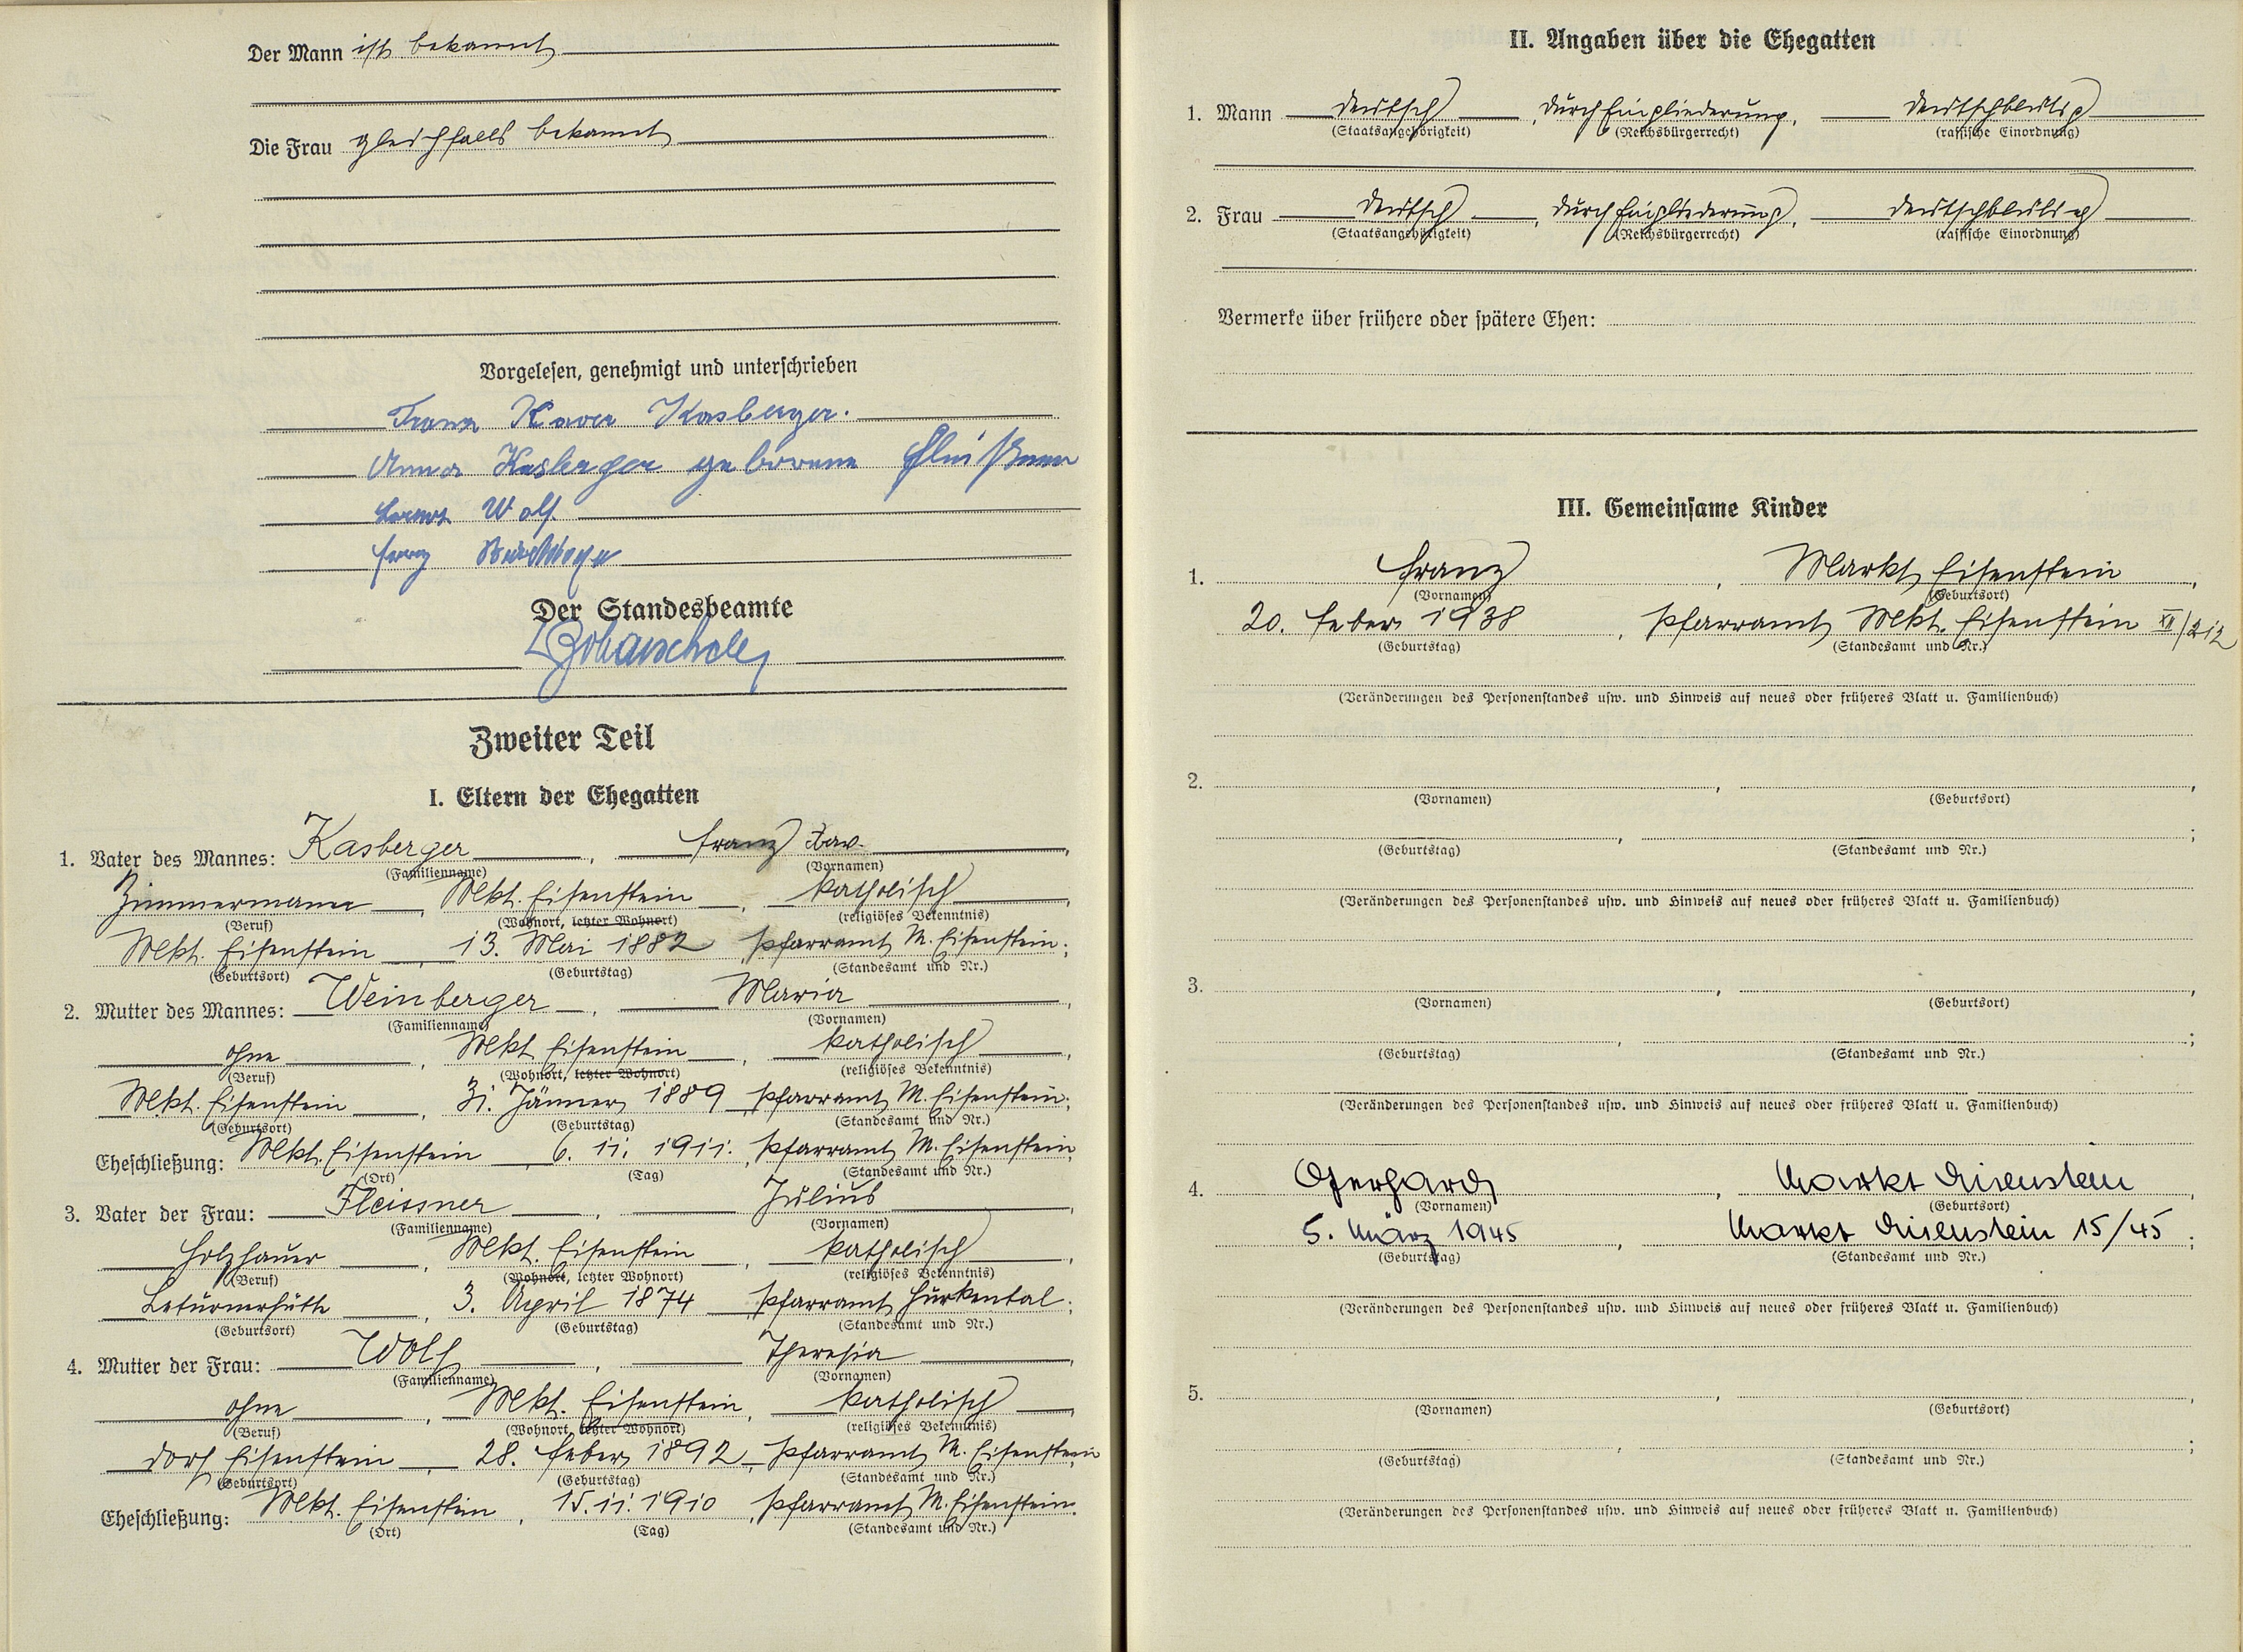 Der Mann ist bekannt
Die Frau gleichfalls bekannt
Vorgelesen, genehmigt und unterschrieben
Franz Xaver Kasberger.
Anna Kasberger geborene Fleißner
Wolf
Der Standesbeamte
Zweiter Teil
I. Eltern der Ehegatten
1. Vater des Mannes: Kasberger, Franz Xav.,
(Familienname) (Vornamen)
Zimmermann, Mkt. Eisenstein, katholisch,
(Beruf) (Wohnort, letzter Wohnort) (religiöses Bekenntnis)
Mkt. Eisenstein, 13. Mai 1882, Pfarramt M. Eisenstein;
(Geburtsort) (Geburtstag) (Standesamt und Nr.)
2. Mutter des Mannes: Weinberger, Maria,
(Familienname) (Vornamen)
ohne, Mkt. Eisenstein, katholisch,
(Beruf) (Wohnort, letzter Wohnort) (religiöses Bekenntnis)
Mkt. Eisenstein, 31. Jänner 1889, Pfarramt M. Eisenstein;
(Geburtsort) (Geburtstag) (Standesamt und Nr.)
Eheschließung: Mkt. Eisenstein, 6. 11. 1911., Pfarramt M. Eisenstein.
(Ort) (Tag) (Standesamt und Nr.)
3. Vater der Frau: Fleissner, Julius,
(Familienname) (Vornamen)
Holzhauer, Mkt. Eisenstein, katholisch,
(Beruf) (Wohnort, letzter Wohnort) (religiöses Bekenntnis)
3. April 1874, Pfarramt Hurkental;
(Geburtsort) (Geburtstag) (Standesamt und Nr.)
4. Mutter der Frau: Wolf, Theresia,
(Familienname) (Vornamen)
ohne, Mkt. Eisenstein, katholisch,
(Beruf) (Wohnort, letzter Wohnort) (religiöses Bekenntnis)
Dorf Eisenstein, 28. Feber 1892, Pfarramt M. Eisenstein
(Geburtsort) (Geburtstag) (Standesamt und Nr.)
Eheschließung: Mkt. Eisenstein, 15. 11. 1910, Pfarramt M. Eisenstein.
(Ort) (Tag) (Standesamt und Nr.)
II. Angaben über die Ehegatten
1. Mann deutsch, durch Eingliederung, deutschblütig
(Staatsangehörigkeit) (Reichsbürgerrecht) (rassische Einordnung)
2. Frau deutsch, durch Eingliederung, deutschblütig
(Staatsangehörigkeit) (Reichsbürgerrecht) (rassische Einordnung)
Vermerke über frühere oder spätere Ehen:
III. Gemeinsame Kinder
1. Franz, Markt Eisenstein,
(Vornamen) (Geburtsort)
20. Feber 1938, Pfarramt Mkt. Eisenstein XII/212
(Geburtstag) (Standesamt und Nr.)
(Veränderungen des Personenstandes usw. und Hinweis auf neues oder früheres Blatt u. Familienbuch)
2. , ,
(Vornamen) (Geburtsort)
, ;
(Geburtstag) (Standesamt und Nr.)
(Veränderungen des Personenstandes usw. und Hinweis auf neues oder früheres Blatt u. Familienbuch)
3. , ,
(Vornamen) (Geburtsort)
, ;
(Geburtstag) (Standesamt und Nr.)
(Veränderungen des Personenstandes usw. und Hinweis auf neues oder früheres Blatt u. Familienbuch)
4. Gerhard, Markt Eisenstein,
(Vornamen) (Geburtsort)
5. März 1945, Markt Eisenstein 15/45;
(Geburtstag) (Standesamt und Nr.)
(Veränderungen des Personenstandes usw. und Hinweis auf neues oder früheres Blatt u. Familienbuch)
5. , ,
(Vornamen) (Geburtsort)
, ;
(Geburtstag) (Standesamt und Nr.)
(Veränderungen des Personenstandes usw. und Hinweis auf neues oder früheres Blatt u. Familienbuch)